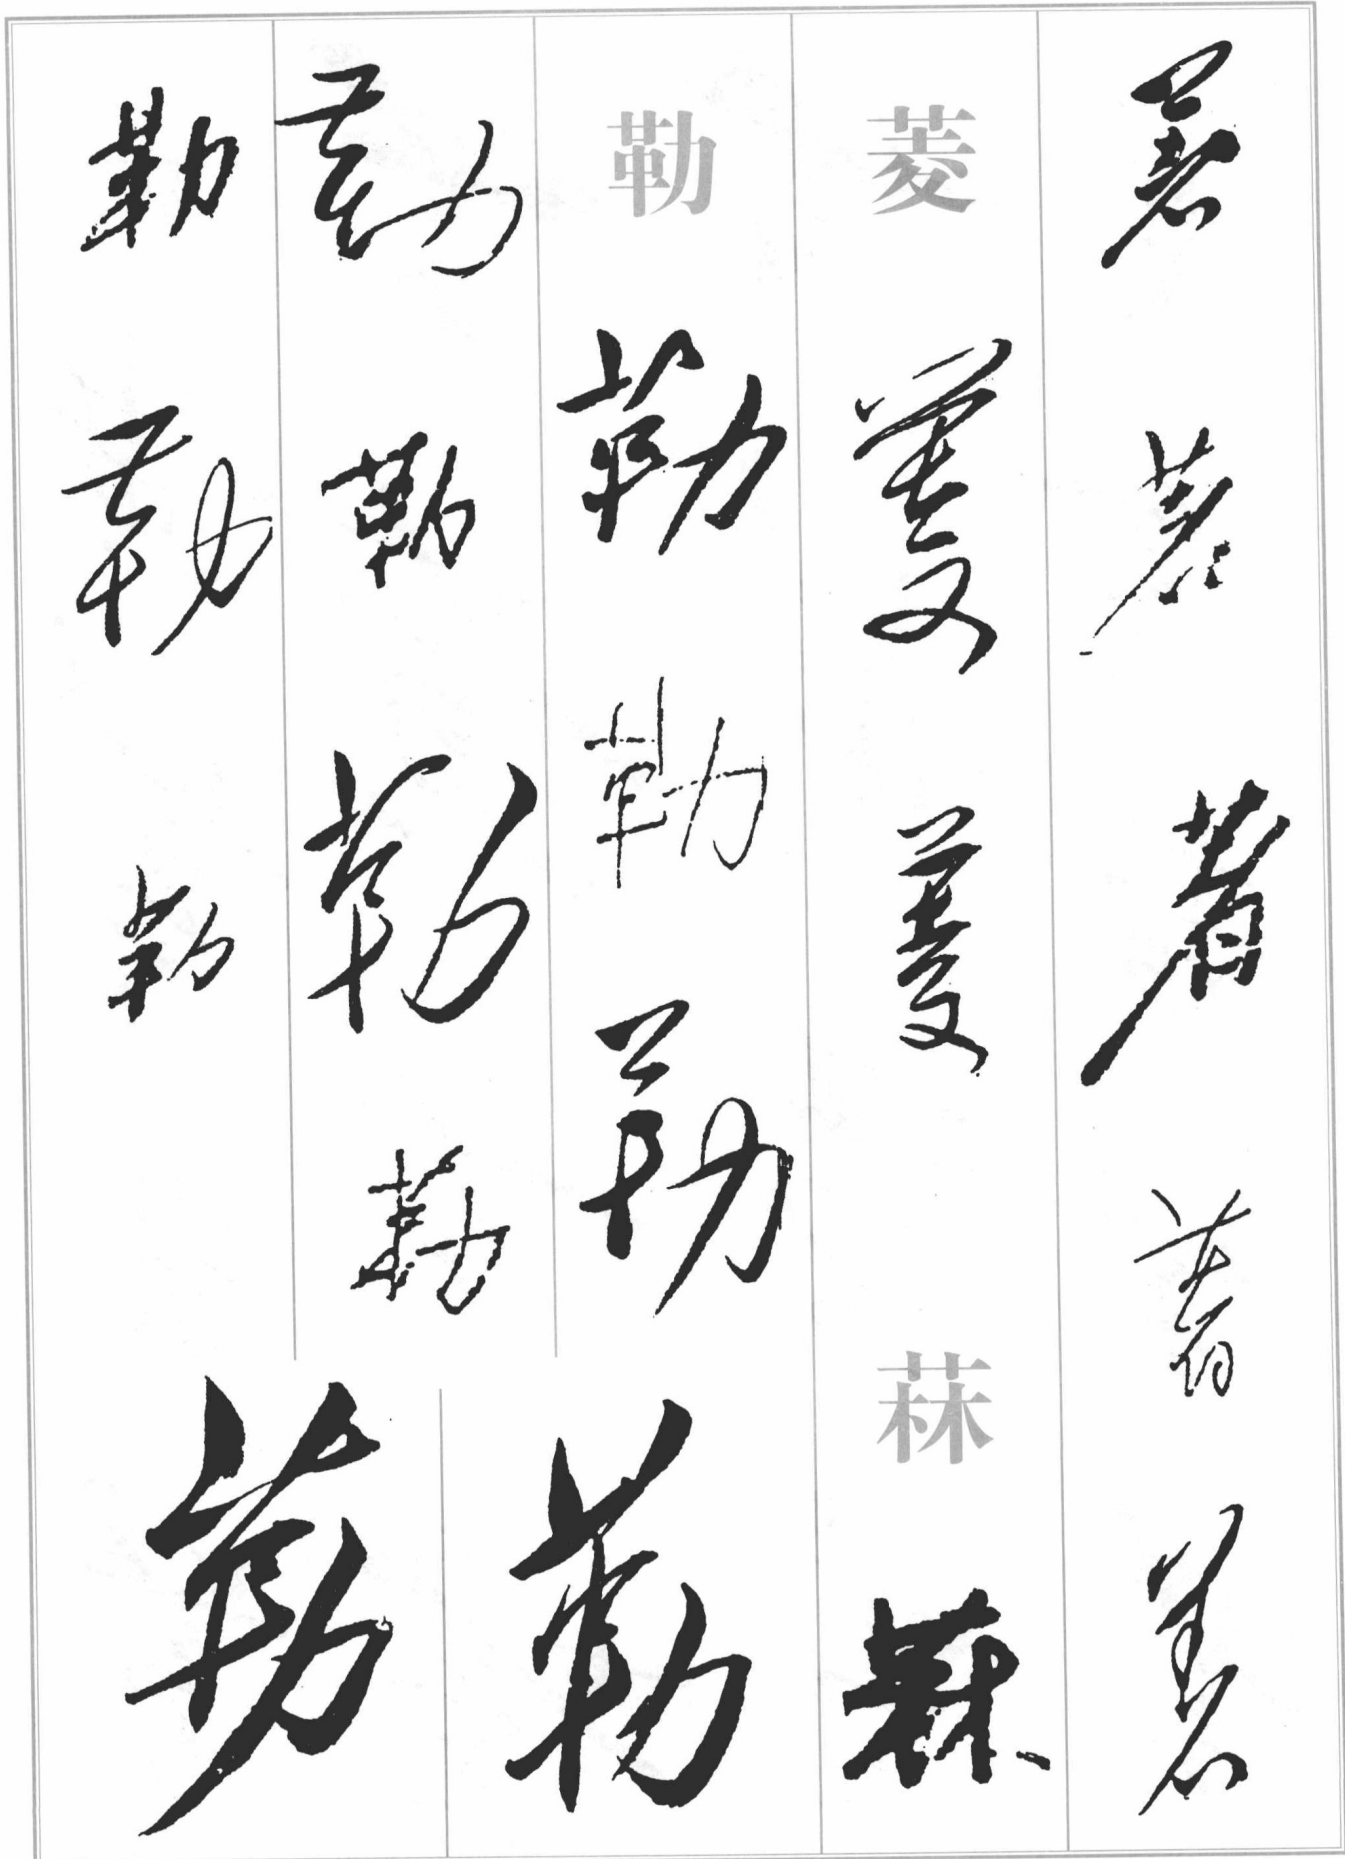 著
著
著
著
著
菱
菱
菱
菻
菻
勒
勒
勒
勒
勒
勒
勒
勒
勒
勒
勒
勒
勒